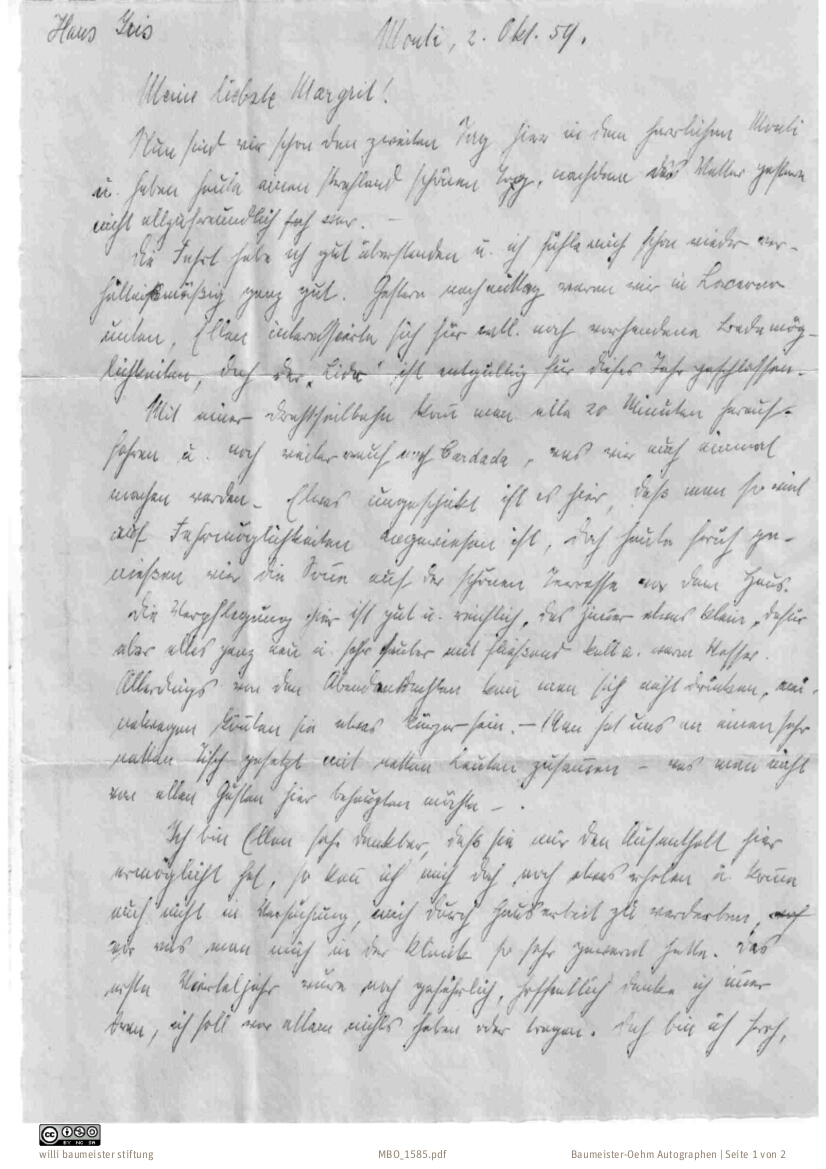 Haus Iris Monti, 2. Okt. 59.
Meine liebste Margrit!
Nun sind wir schon den zweiten Tag hier in dem herrlichen Monti
u. haben heute einen strahlend schönen Tag, nachdem das Wetter gestern
nicht allzu freundlich war. –
Die Fahrt habe ich gut überstanden u. ich fühle mich schon wieder ver-
hältnismäßig ganz gut. Gestern nachmittag waren wir in Locarno
unten, Ellen interessierte sich für evtl. noch vorhandene Bademög-
lichkeiten, doch der „Lido“ ist entgültig für dieses Jahr geschlossen.
Mit einer Drahtseilbahn kann man alle 20 Minuten herauf-
fahren u. noch weiter rauf nach Cardada, was wir auch einmal
machen werden. Etwas ungeschickt ist es hier, daß man so viel
auf Fahrmöglichkeiten angewiesen ist, doch heute früh ge-
nießen wir die Sonne auf der schönen Terrasse vor dem Haus.
Die Verpflegung hier ist gut u. reichlich, das Zimmer etwas klein, dafür
aber alles ganz neu u. sehr sauber mit fließend kalt u. warm Wasser.
Allerdings von den Abendandachten kann man sich nicht drücken, mei-
netwegen könnten sie etwas kürzer sein. – Man hat uns an einen sehr
netten Tisch gesetzt mit netten Leuten zusammen – was man nicht
von allen Gästen hier behaupten möchte –.
Ich bin Ellen sehr dankbar, daß sie mir den Aufenthalt hier
ermöglicht hat, so kann ich mich doch noch etwas erholen u. komme
auch nicht in Versuchung, mich durch Hausarbeit zu verderben,
vor was man mich in der Klinik so sehr gewarnt hatte. Das
erste Vierteljahr wäre noch gefährlich, hoffentlich denke ich immer
dran, ich soll vor allem nichts heben oder tragen. Doch bin ich froh,
willi baumeister stiftung MBO_1585.pdf Baumeister-Oehm Autographen | Seite 1 von 2